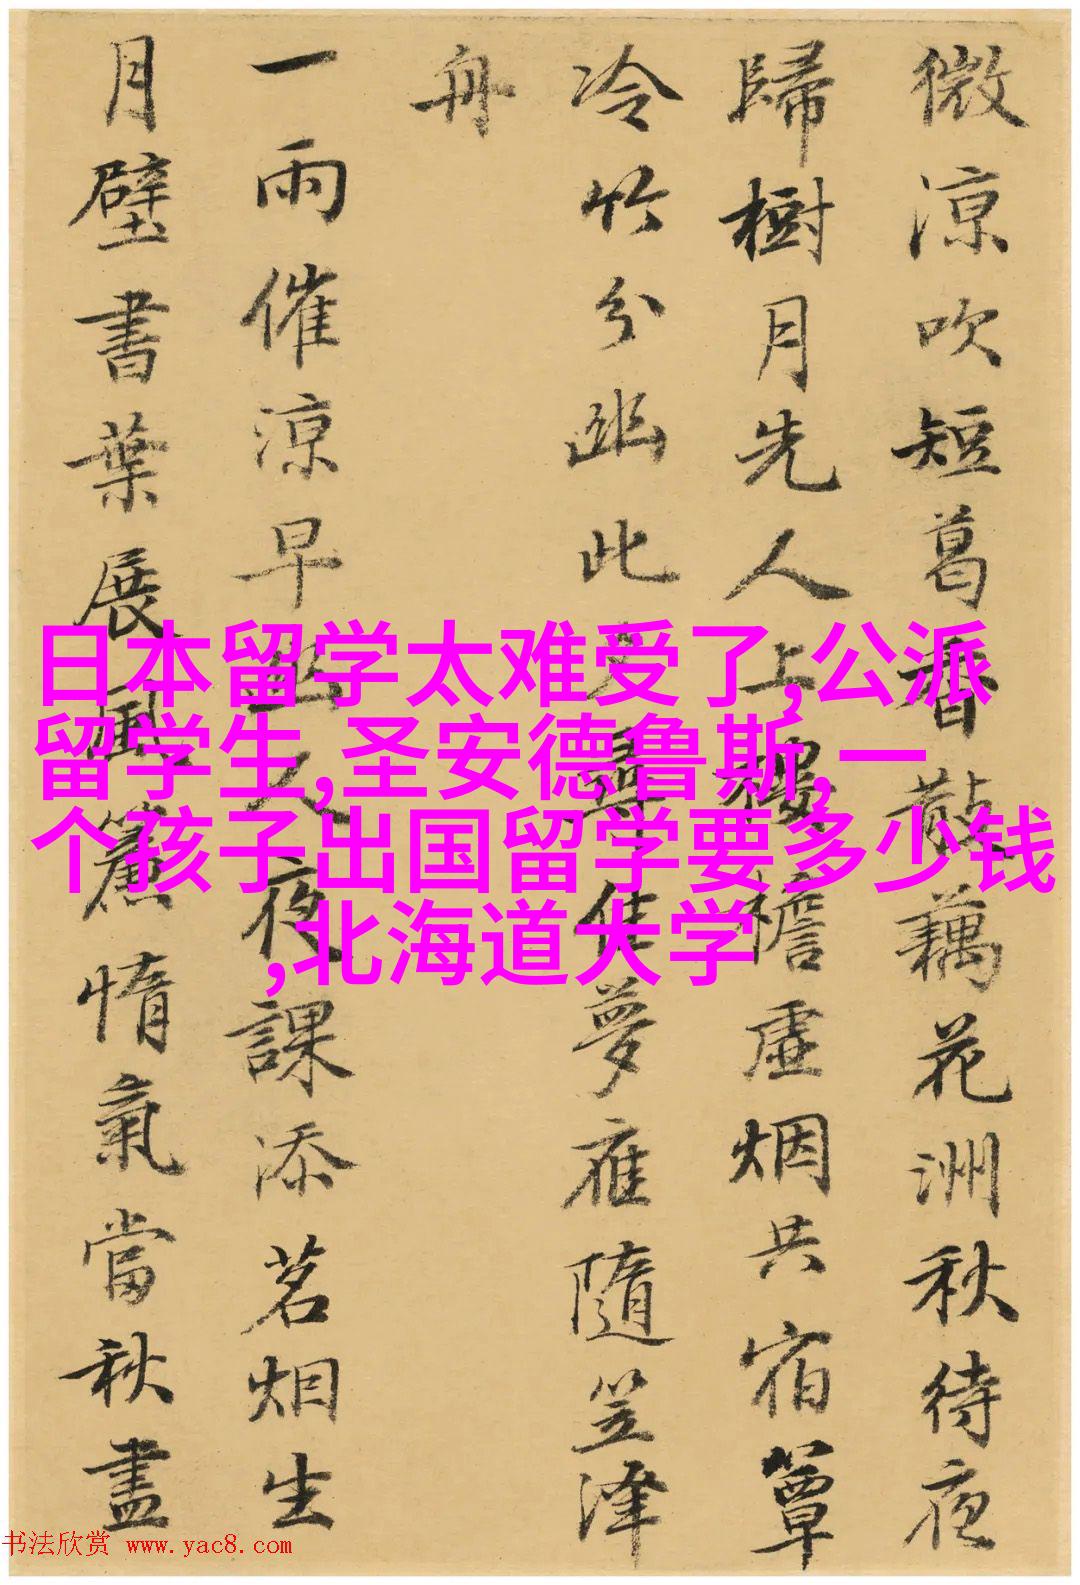 微涼吹短葛香散藕花洲秋待夜
歸樹月先人上樓檐虛烟共宿簟
冷竹分幽此尊佳夢雁隨笠澤
舟
一雨催涼早幽人夜課添茗烟生
月壁書葉展風簾惰氣當秋盡
日本留学太难受了,公派
留学生,圣安德鲁斯,一
个孩子出国留学要多少钱
,北海道大学
书法欣赏 www.yac8.com